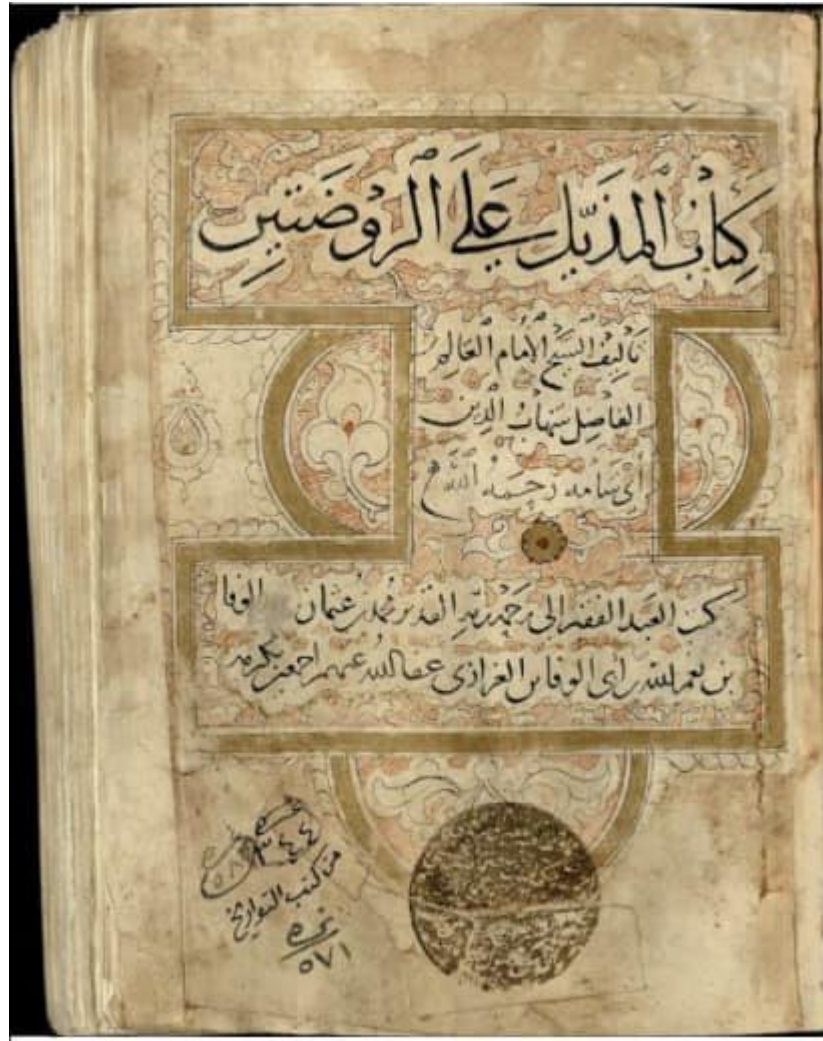 كتاب المذيل على الروضتين
تأليف الشيخ الإمام العالم
الفاضل شهاب الدين
أبي شامه رحمه الله
كتب العبد الفقير إلى رحمة ربه القدير محمد بن عثمان
بن نعم الله بن أبي الوفا بن العزازي عفا الله عنهم أجمعين بكرمه
٣٤٤
من كتب التواريخ
نمره
٥٧١